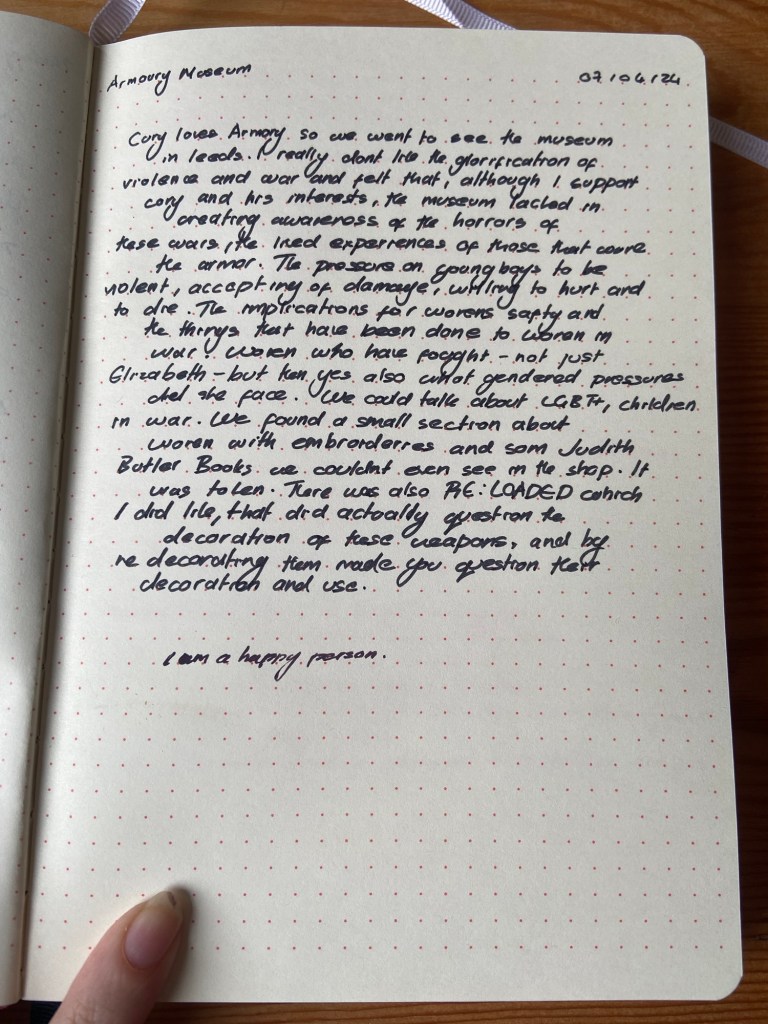 Armoury Museum
07/04/24
Cory loves Armory so we went to see the museum
in leeds. I really dont like the glorification of
violence and war and felt that, although I support
cory and his interests, the museum lacked in
creating awareness of the horrors of
these wars, the lived experiences of those that wore
the armor. The pressure on young boys to be
violent, accepting of damage, willing to hurt and
to die. The implications for womens safty and
the things that have been done to women in
war! Women who have fought - not just
Elizabeth - but then yes also what gendered pressures
did she face. We could talk about LGBT+, children
in war. We found a small section about
women with embroideries and som Judith
Butler Books we couldnt even see in the shop. It
was token. There was also RE:LOADED which
I did like, that did actually question the
decoration of these weapons, and by
re decorating them made you question their
decoration and use.
I am a happy person.